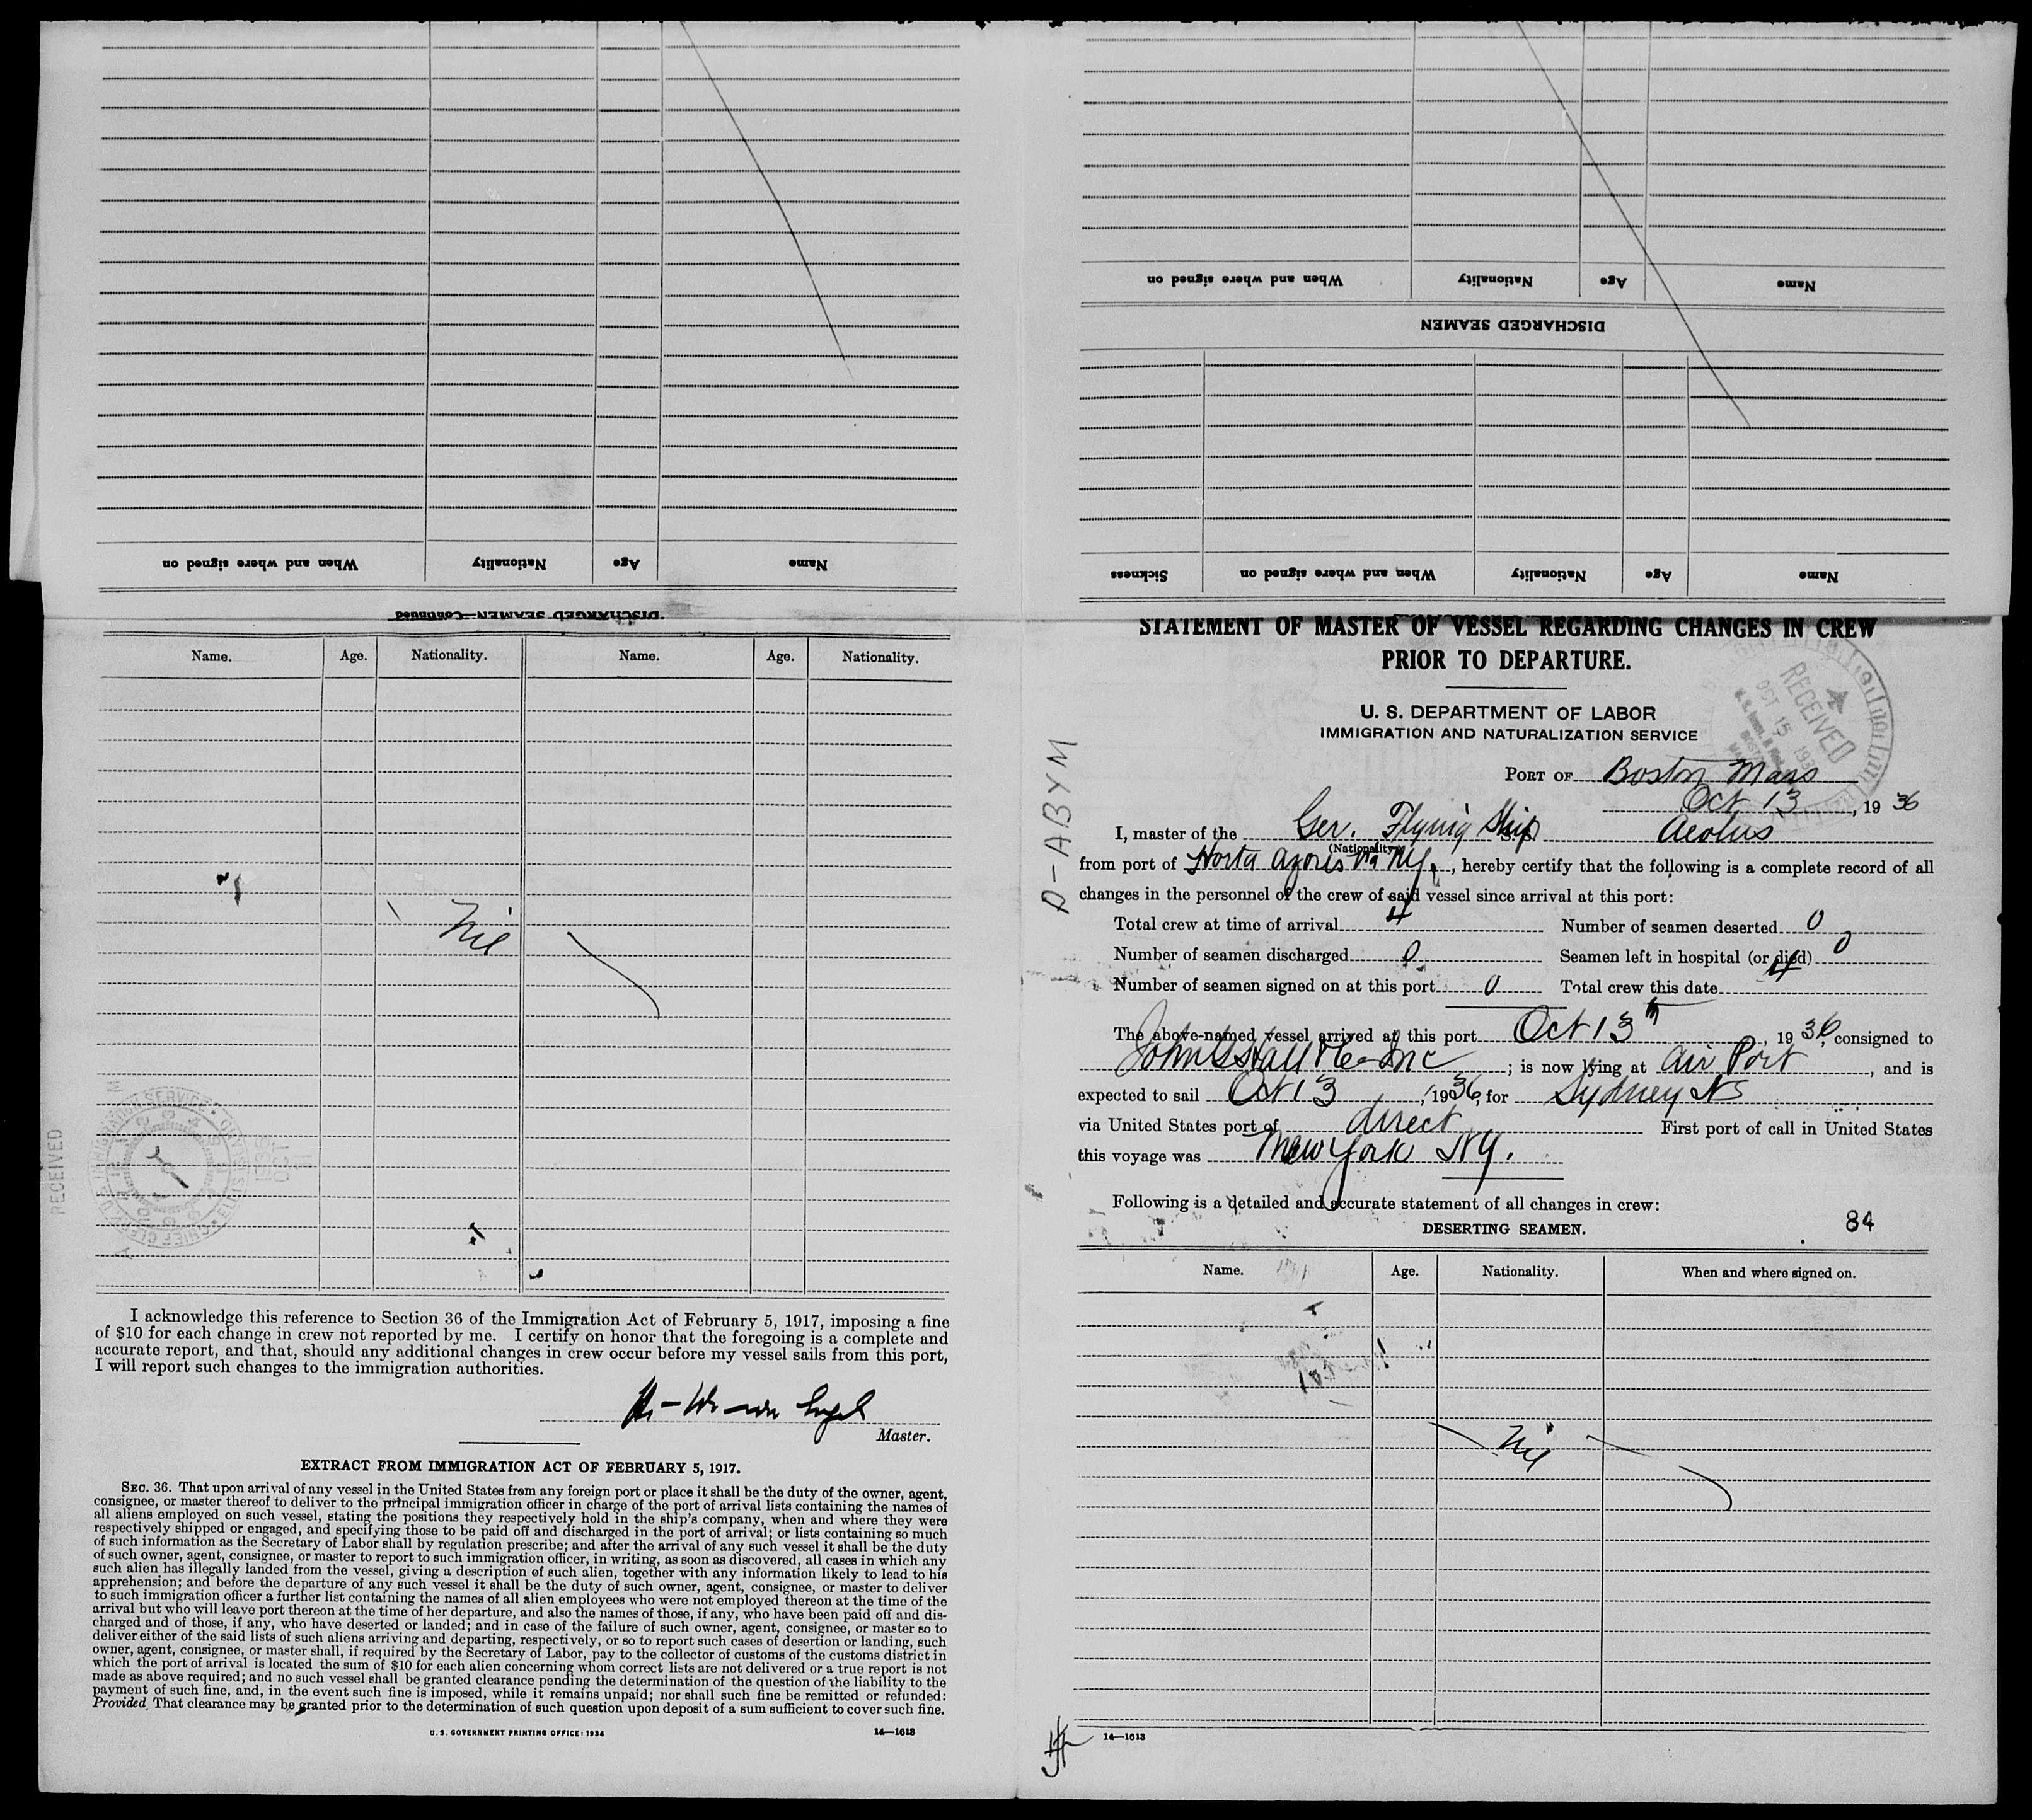 When and where signed on Nationality Age Name
DISCHARGED SEAMEN—Continued
Name. Age. Nationality. Name. Age. Nationality.
Nil
RECEIVED
I acknowledge this reference to Section 36 of the Immigration Act of February 5, 1917, imposing a fine
of $10 for each change in crew not reported by me. I certify on honor that the foregoing is a complete and
accurate report, and that, should any additional changes in crew occur before my vessel sails from this port,
I will report such changes to the immigration authorities.
Engel
Master.
EXTRACT FROM IMMIGRATION ACT OF FEBRUARY 5, 1917.
SEC. 36. That upon arrival of any vessel in the United States from any foreign port or place it shall be the duty of the owner, agent,
consignee, or master thereof to deliver to the principal immigration officer in charge of the port of arrival lists containing the names of
all aliens employed on such vessel, stating the positions they respectively hold in the ship's company, when and where they were
respectively shipped or engaged, and specifying those to be paid off and discharged in the port of arrival; or lists containing so much
of such information as the Secretary of Labor shall by regulation prescribe; and after the arrival of any such vessel it shall be the duty
of such owner, agent, consignee, or master to report to such immigration officer, in writing, as soon as discovered, all cases in which any
such alien has illegally landed from the vessel, giving a description of such alien, together with any information likely to lead to his
apprehension; and before the departure of any such vessel it shall be the duty of such owner, agent, consignee, or master to deliver
to such immigration officer a further list containing the names of all alien employees who were not employed thereon at the time of the
arrival but who will leave port thereon at the time of her departure, and also the names of those, if any, who have been paid off and dis-
charged and of those, if any, who have deserted or landed; and in case of the failure of such owner, agent, consignee, or master so to
deliver either of the said lists of such aliens arriving and departing, respectively, or so to report such cases of desertion or landing, such
owner, agent, consignee, or master shall, if required by the Secretary of Labor, pay to the collector of customs of the customs district in
which the port of arrival is located the sum of $10 for each alien concerning whom correct lists are not delivered or a true report is not
made as above required; and no such vessel shall be granted clearance pending the determination of the question of the liability to the
payment of such fine, and, in the event such fine is imposed, while it remains unpaid; nor shall such fine be remitted or refunded:
Provided, That clearance may be granted prior to the determination of such question upon deposit of a sum sufficient to cover such fine.
U. S. GOVERNMENT PRINTING OFFICE: 1934 14—1613
When and where signed on Nationality Age Name
DISCHARGED SEAMEN
Sickness When and where signed on Nationality Age Name
STATEMENT OF MASTER OF VESSEL REGARDING CHANGES IN CREW
PRIOR TO DEPARTURE.
RECEIVED
OCT 15 193
U. S. DEPARTMENT OF LABOR
IMMIGRATION AND NATURALIZATION SERVICE
D-ABYM
PORT OF Boston Mass
Oct 13, 19 36
I, master of the Ger. Flying Ship S. S. Aeolus
(Nationality)
from port of Horta Azores via NY., hereby certify that the following is a complete record of all
changes in the personnel of the crew of said vessel since arrival at this port:
Total crew at time of arrival 4 Number of seamen deserted 0
Number of seamen discharged 0 Seamen left in hospital (or died) 0
Number of seamen signed on at this port 0 Total crew this date 4
The above-named vessel arrived at this port Oct 13th, 19 36, consigned to
John G Hall & Co Inc; is now lying at Air Port, and is
expected to sail Oct 13, 1936, for Sydney NS
via United States port of direct First port of call in United States
this voyage was New York NY.
Following is a detailed and accurate statement of all changes in crew:
DESERTING SEAMEN. 84
Name. Age. Nationality. When and where signed on.
Nil
14—1613